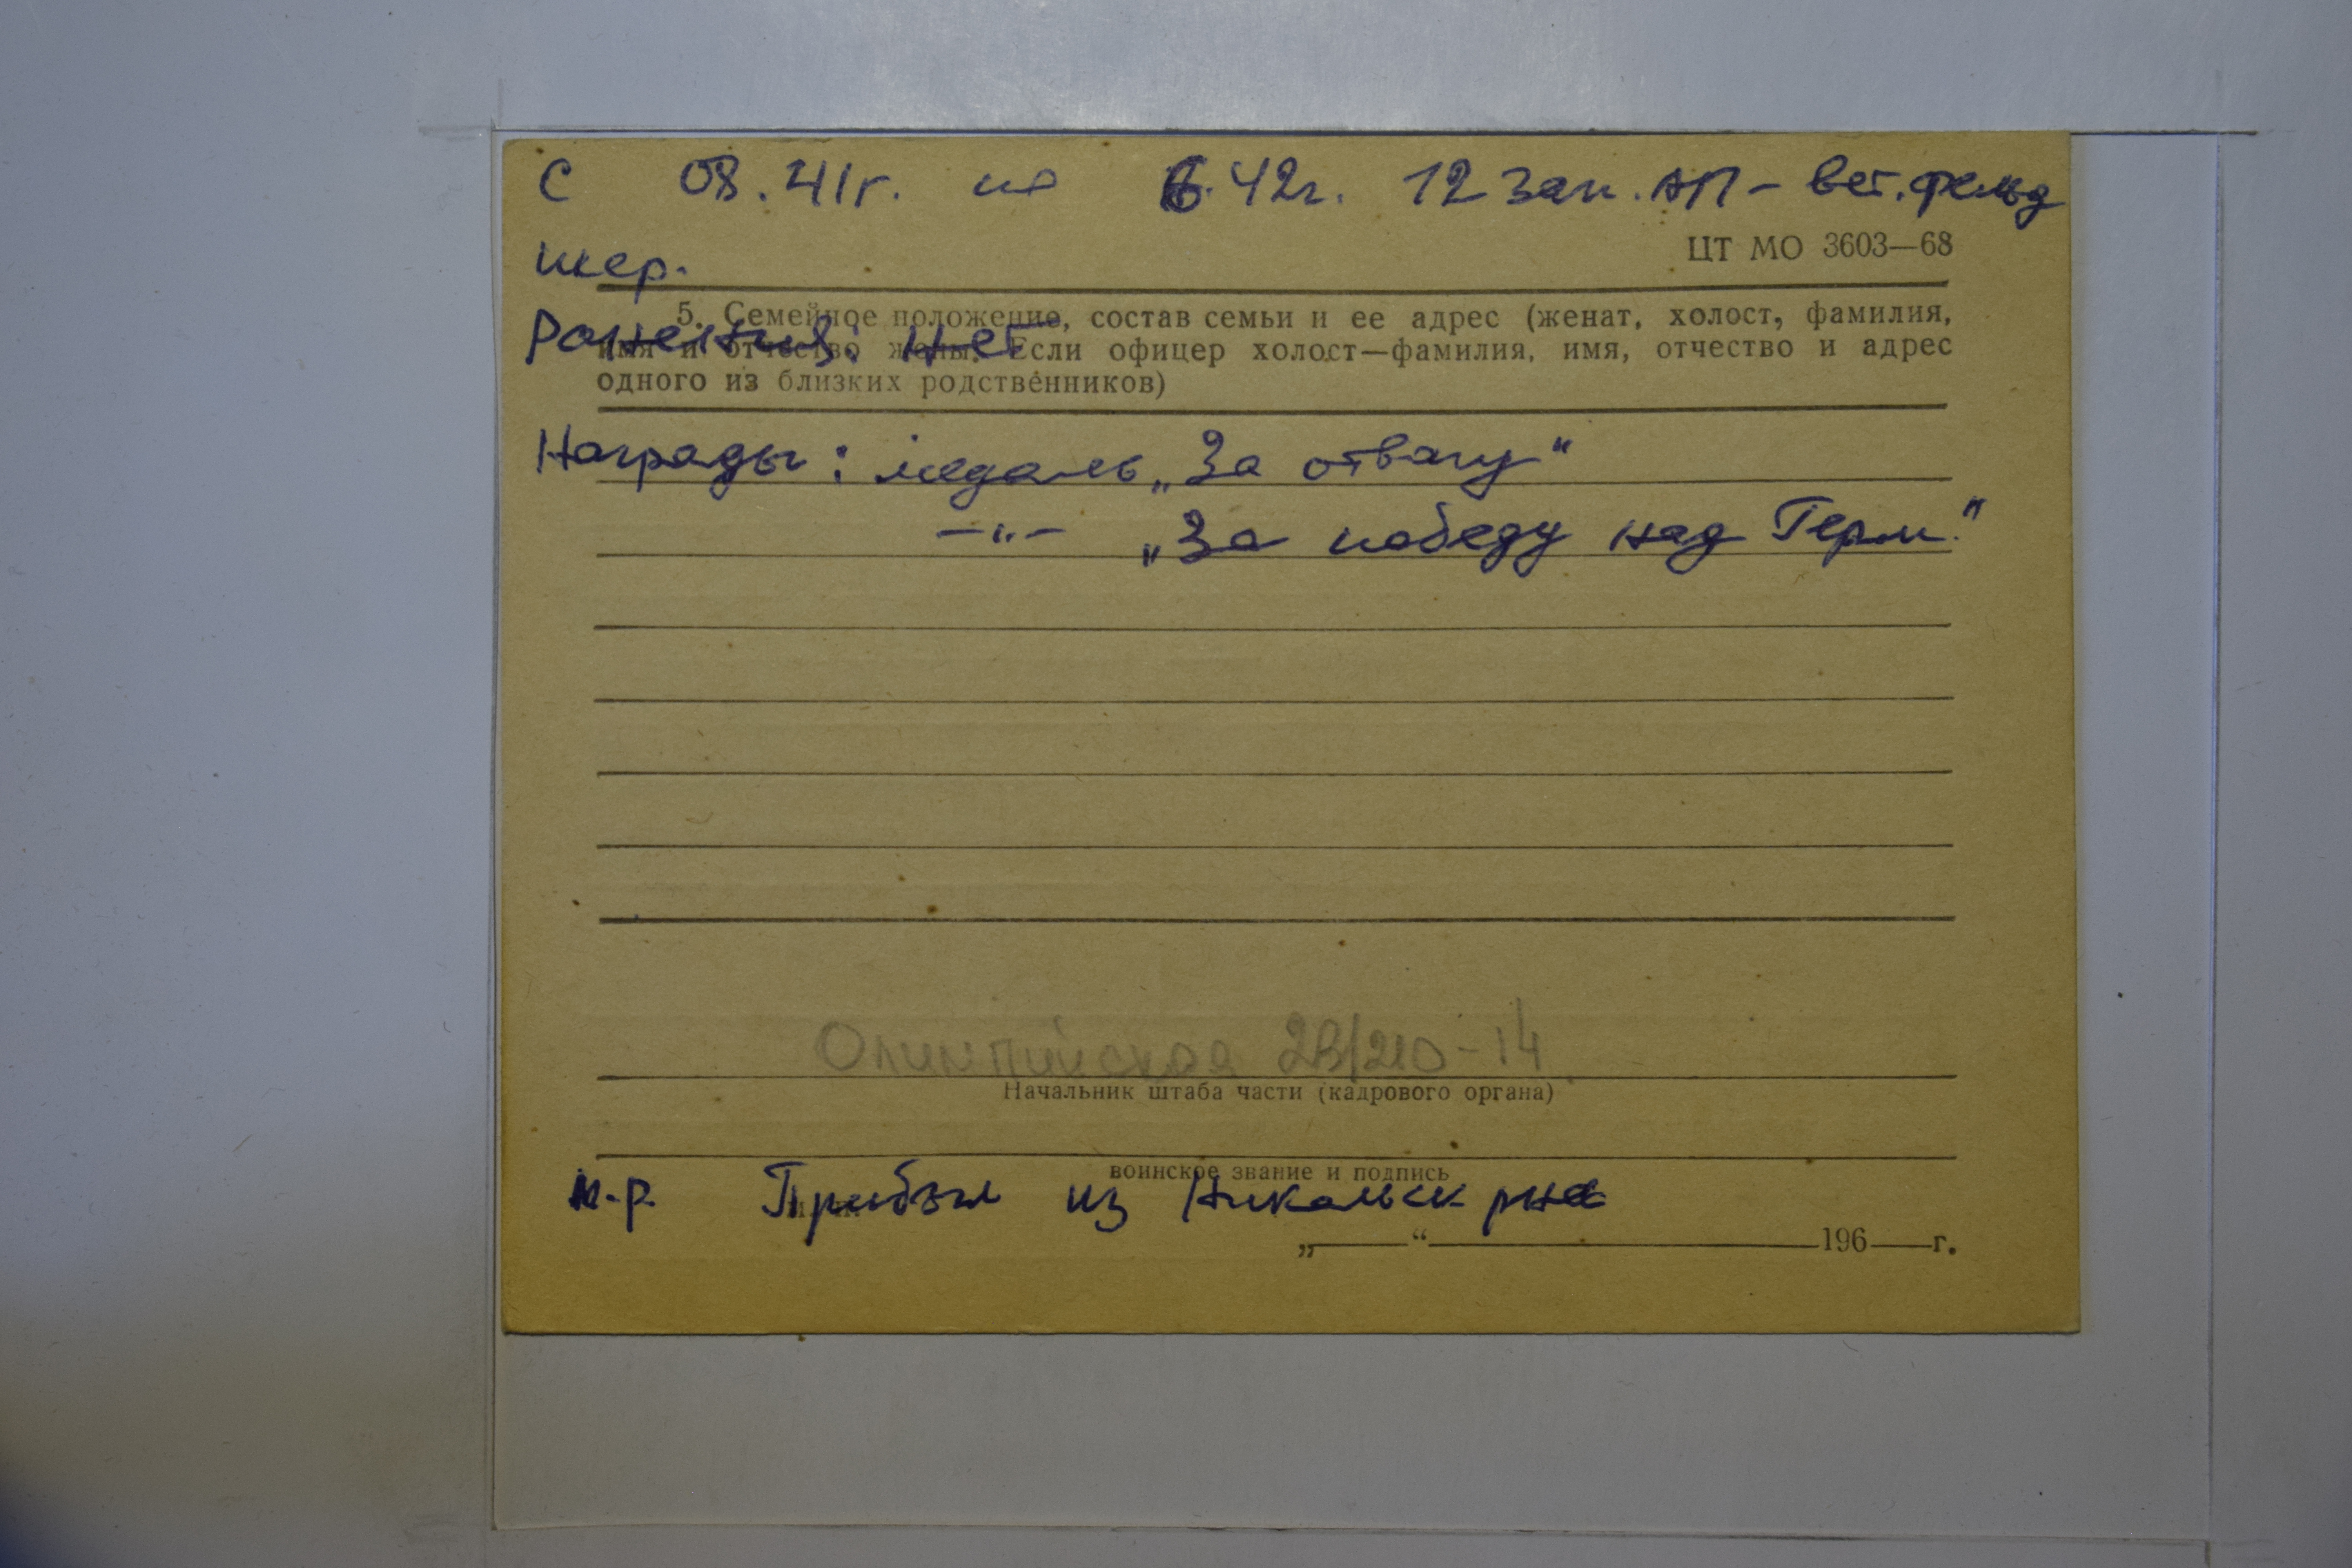 С 08.41г. по 6.42г. 12 зап. АП - вет. фельд
шер.
ЦТ МО 3603—68
5. Семейное положение, состав семьи и ее адрес (женат, холост, фамилия,
имя и отчество жены. Если офицер холост—фамилия, имя, отчество и адрес
одного из близких родственников)
Ранения: нет
Награды: медаль „За отвагу“
—„— „За победу над Герм.“
Олимпийская 210-14
Начальник штаба части (кадрового органа)
воинское звание и подпись
м.р. Прибыл из Никольск рна
„ “ 196 г.